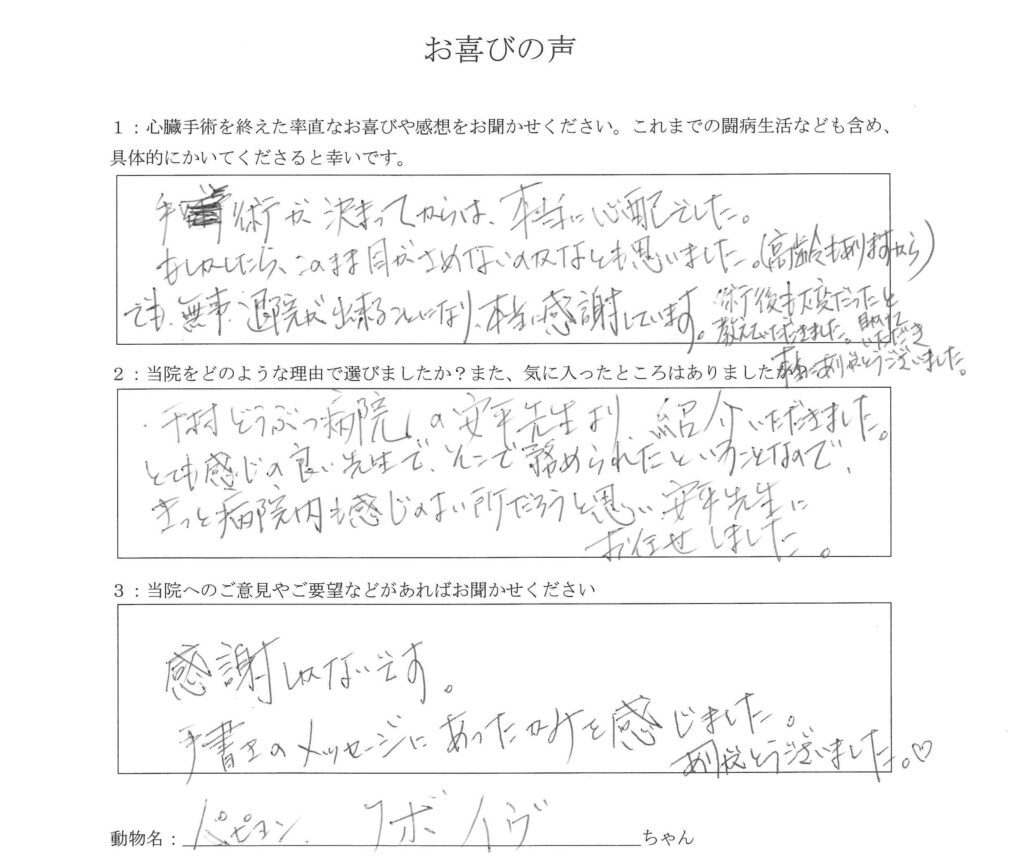 お喜びの声
1:心臓手術を終えた率直なお喜びや感想をお聞かせください。これまでの闘病生活なども含め、
具体的にかいてくださると幸いです。
手術が決まってからは、本当に心配でした。
もしかしたら、このまま目がさめないのかなとも思いました。(高齢もありますから)
でも、無事、退院が出来ることになり、本当に感謝しています。
術後も大変だったと
教えていただきました。助けて
いただき
本当にありがとうございました。
2:当院をどのような理由で選びましたか?また、気に入ったところはありましたか?
・千村どうぶつ病院の安平先生より、紹介いただきました。
とても感じの良い先生で、そこで務められたということなので、
きっと病院内も感じのよい所だろうと思い、安平先生に
お任せしました。
3:当院へのご意見やご要望などがあればお聞かせください
感謝しかないです。
手書きのメッセージにあったかみを感じました。
ありがとうございました。♡
動物名:パピヨン. ノボ イヴ ちゃん